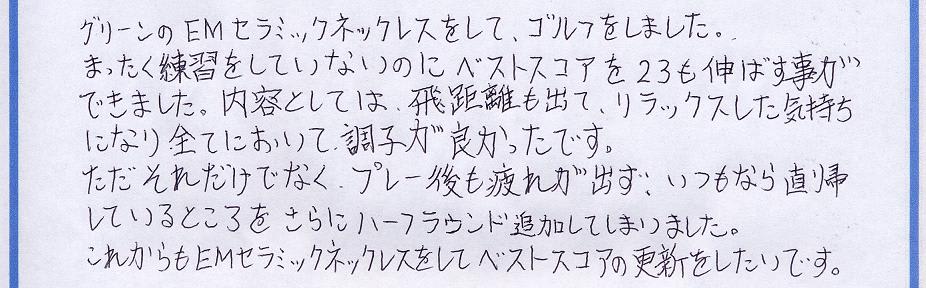 グリーンのEMセラミックネックレスをして、ゴルフをしました。
まったく練習をしていないのにベストスコアを23も伸ばす事が
できました。内容としては、飛距離も出て、リラックスした気持ち
になり全てにおいて、調子が良かったです。
ただそれだけでなく、プレー後も疲れが出ず、いつもなら直帰
しているところをさらにハーフラウンド追加してしまいました。
これからもEMセラミックネックレスをしてベストスコアの更新をしたいです。